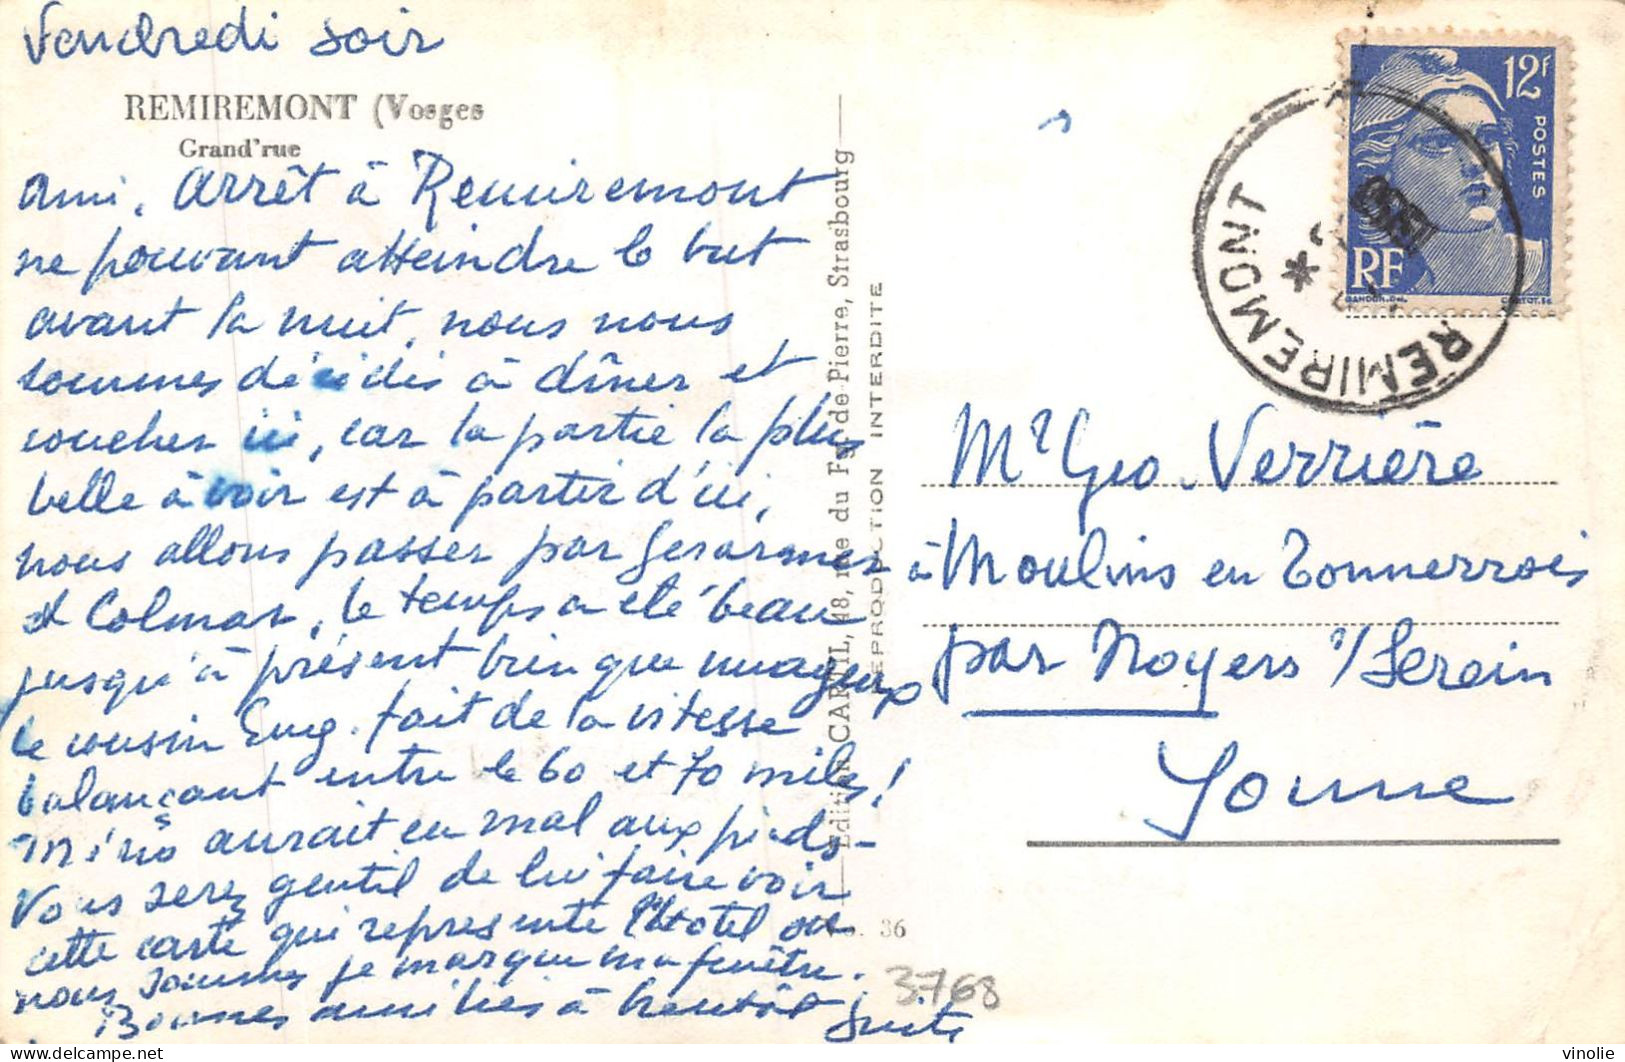 Vendredi soir
REMIREMONT (Vosges
Grand'rue
Ami, Arrêt à Remiremont
ne pouvant atteindre le but
avant la nuit, nous nous
sommes décidés à dîner et
coucher ici, car la partie la plus
belle à voir est à partir d'ici,
nous allons passer par Gerarmer
et Colmar, le temps a été beau
jusqu'à présent bien que nuageux
le cousin Eug. fait de la vitesse
balançant entre le 60 et 70 miles!
aurait eu mal aux pieds-
Vous serez gentil de lui faire voir
cette carte qui represente l'Hotel ou
nous sommes je marque ma fenêtre.
Bonnes amitiés à bientôt
Edition CARTIL, 48, rue du Fg-de-Pierre, Strasbourg
REPRODUCTION INTERDITE
36
3768
12f
POSTES
RF
GANDON.DEL.
REMIREMONT
REMIREMONT *
Mr Geo. Verrière
à Moulins en Tonnerrois
par Noyers s/Serein
Yonne
vinolie